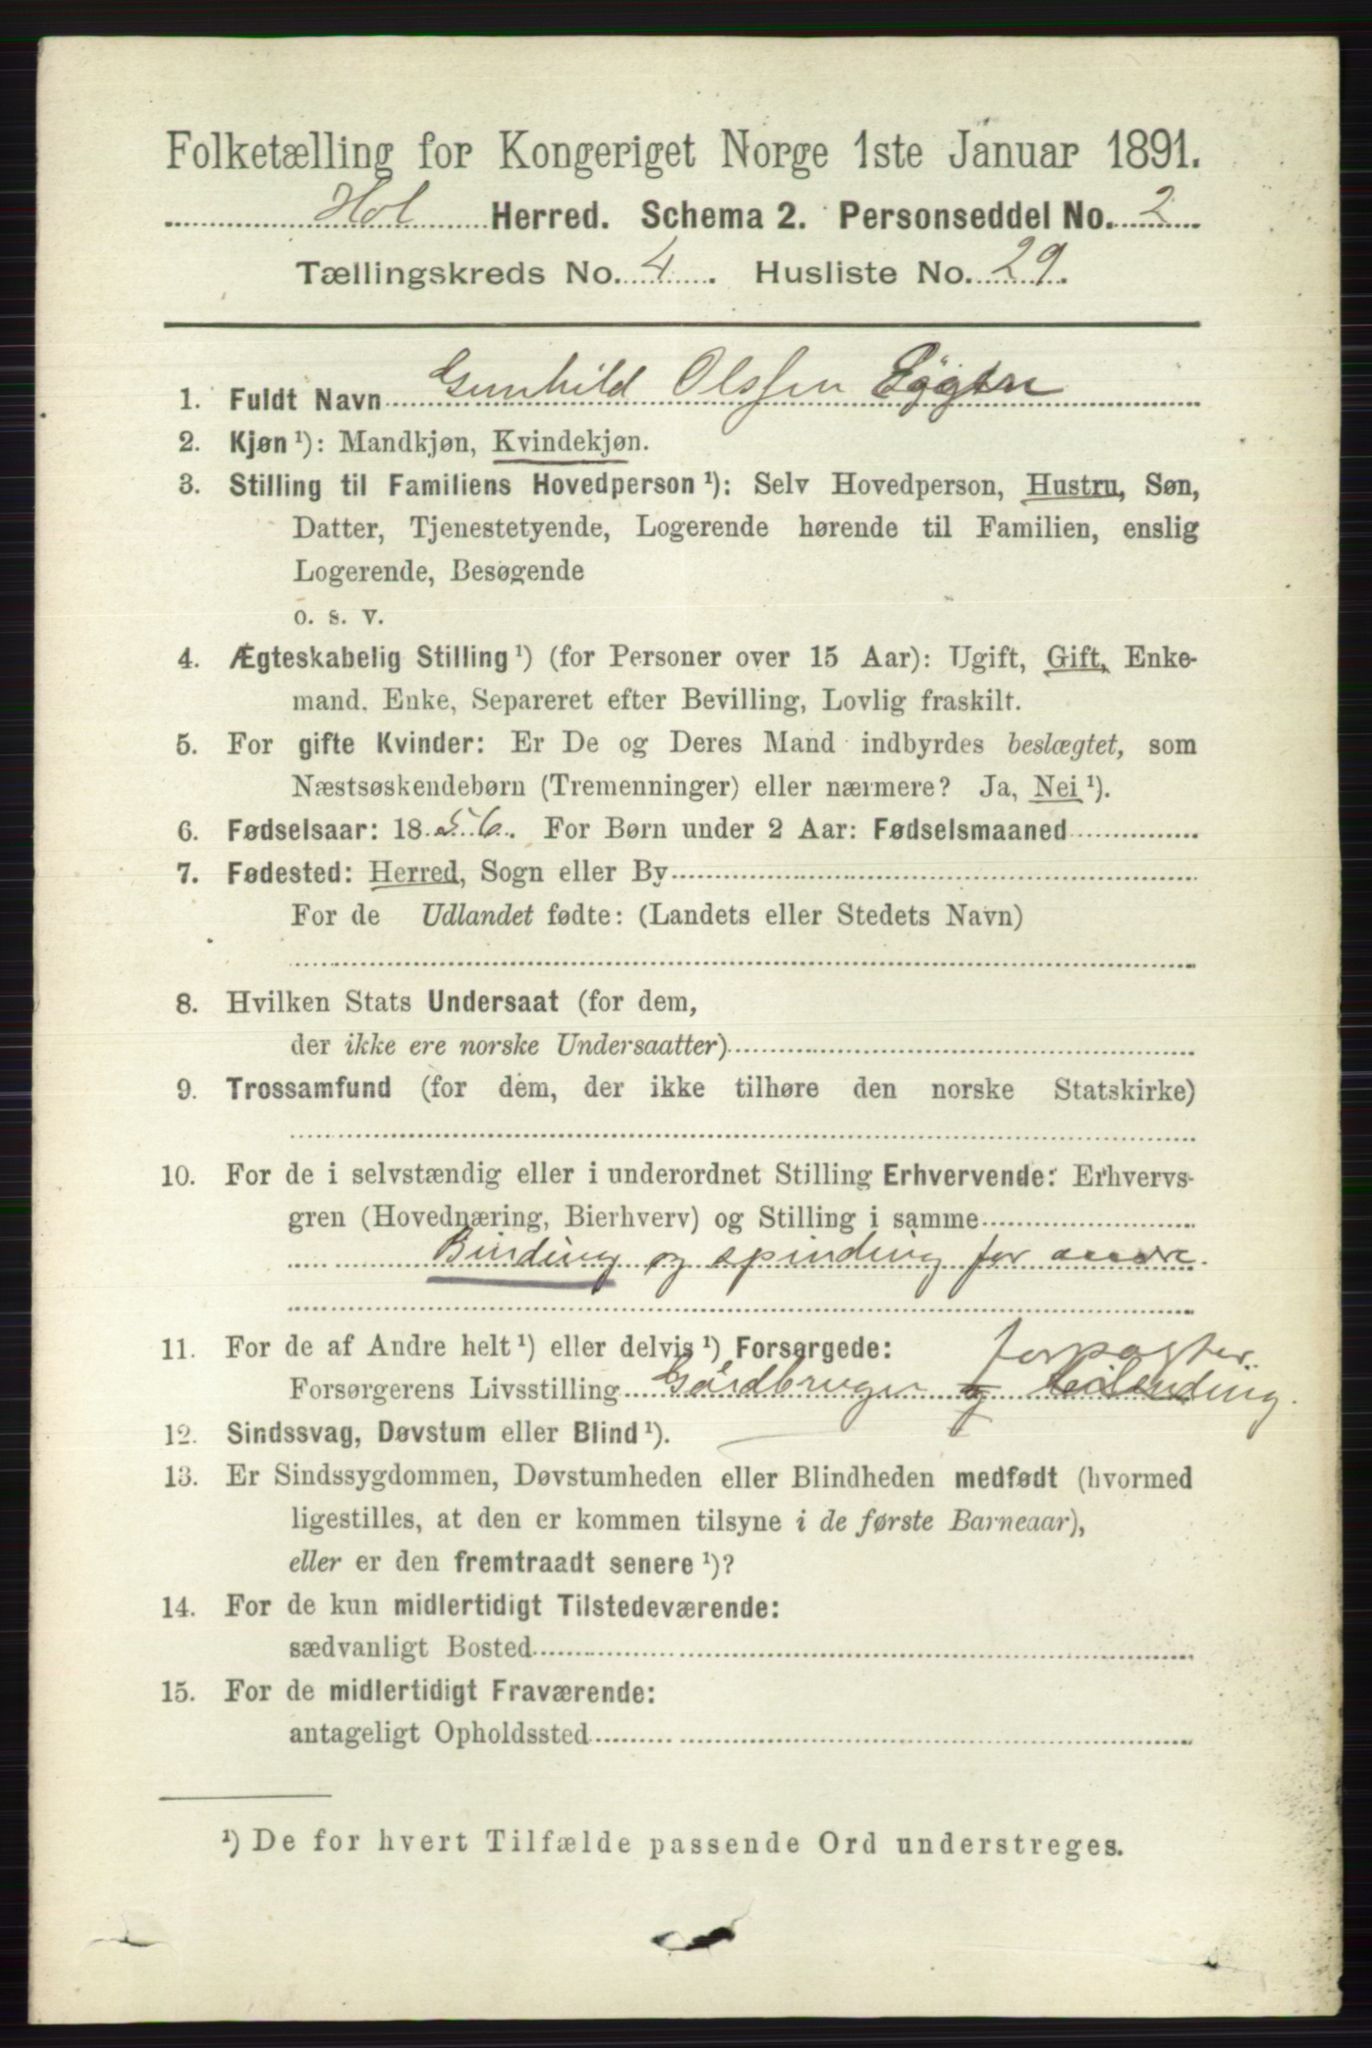 Folketælling for Kongeriget Norge 1ste Januar 1891.
Hol Herred. Schema 2. Personseddel No. 2
Tællingskreds No. 4. Husliste No. 29.
1. Fuldt Navn Gunhild Olsen
2. Kjøn ¹): Mandkjøn, Kvindekjøn.
3. Stilling til Familiens Hovedperson ¹): Selv Hovedperson, Hustru, Søn,
Datter, Tjenestetyende, Logerende hørende til Familien, enslig
Logerende, Besøgende
o. s. v.
4. Ægteskabelig Stilling ¹) (for Personer over 15 Aar): Ugift, Gift, Enke-
mand, Enke, Separeret efter Bevilling, Lovlig fraskilt.
5. For gifte Kvinder: Er De og Deres Mand indbyrdes beslægtet, som
Næstsøskendebørn (Tremenninger) eller nærmere? Ja, Nei ¹).
6. Fødselsaar: 1856. For Børn under 2 Aar: Fødselsmaaned
7. Fødested: Herred, Sogn eller By
For de Udlandet fødte: (Landets eller Stedets Navn)
8. Hvilken Stats Undersaat (for dem,
der ikke ere norske Undersaatter)
9. Trossamfund (for dem, der ikke tilhøre den norske Statskirke)
10. For de i selvstændig eller i underordnet Stilling Erhvervende: Erhvervs-
gren (Hovednæring, Bierhverv) og Stilling i samme
Binding og spinding for andre.
11. For de af Andre helt ¹) eller delvis ¹) Forsørgede: forpagter.
Forsørgerens Livsstilling Gårdbruger og
12. Sindssvag, Døvstum eller Blind ¹).
13. Er Sindssygdommen, Døvstumheden eller Blindheden medfødt (hvormed
ligestilles, at den er kommen tilsyne i de første Barneaar),
eller er den fremtraadt senere ¹)?
14. For de kun midlertidigt Tilstedeværende:
sædvanligt Bosted
15. For de midlertidigt Fraværende:
antageligt Opholdssted
¹) De for hvert Tilfælde passende Ord understreges.